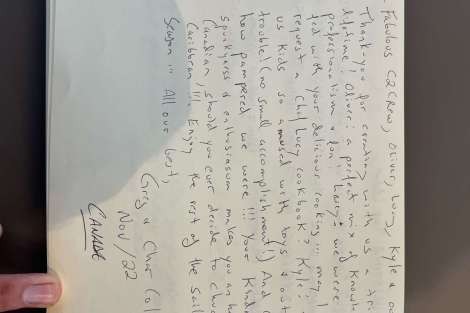 Fabulous C2 Crew, Oliver, Lucy, Kyle &
Thank you for creating with us a
lifetime! Oliver: a perfect mix of
professionalism & fun! Lucy: we were
ted with your delicious cooking... may I
request a Chef Lucy cookbook? Kyle:
us kids so amused with toys & out
trouble! (no small accomplishment!) And
how pampered we were!!! Your kind
spunkyness & enthusiasm makes you an
Canadian should you ever decide to
Caribbean!!! Enjoy the rest of the
Season... All our best,
Greg & Char
Nov/22
CANADA